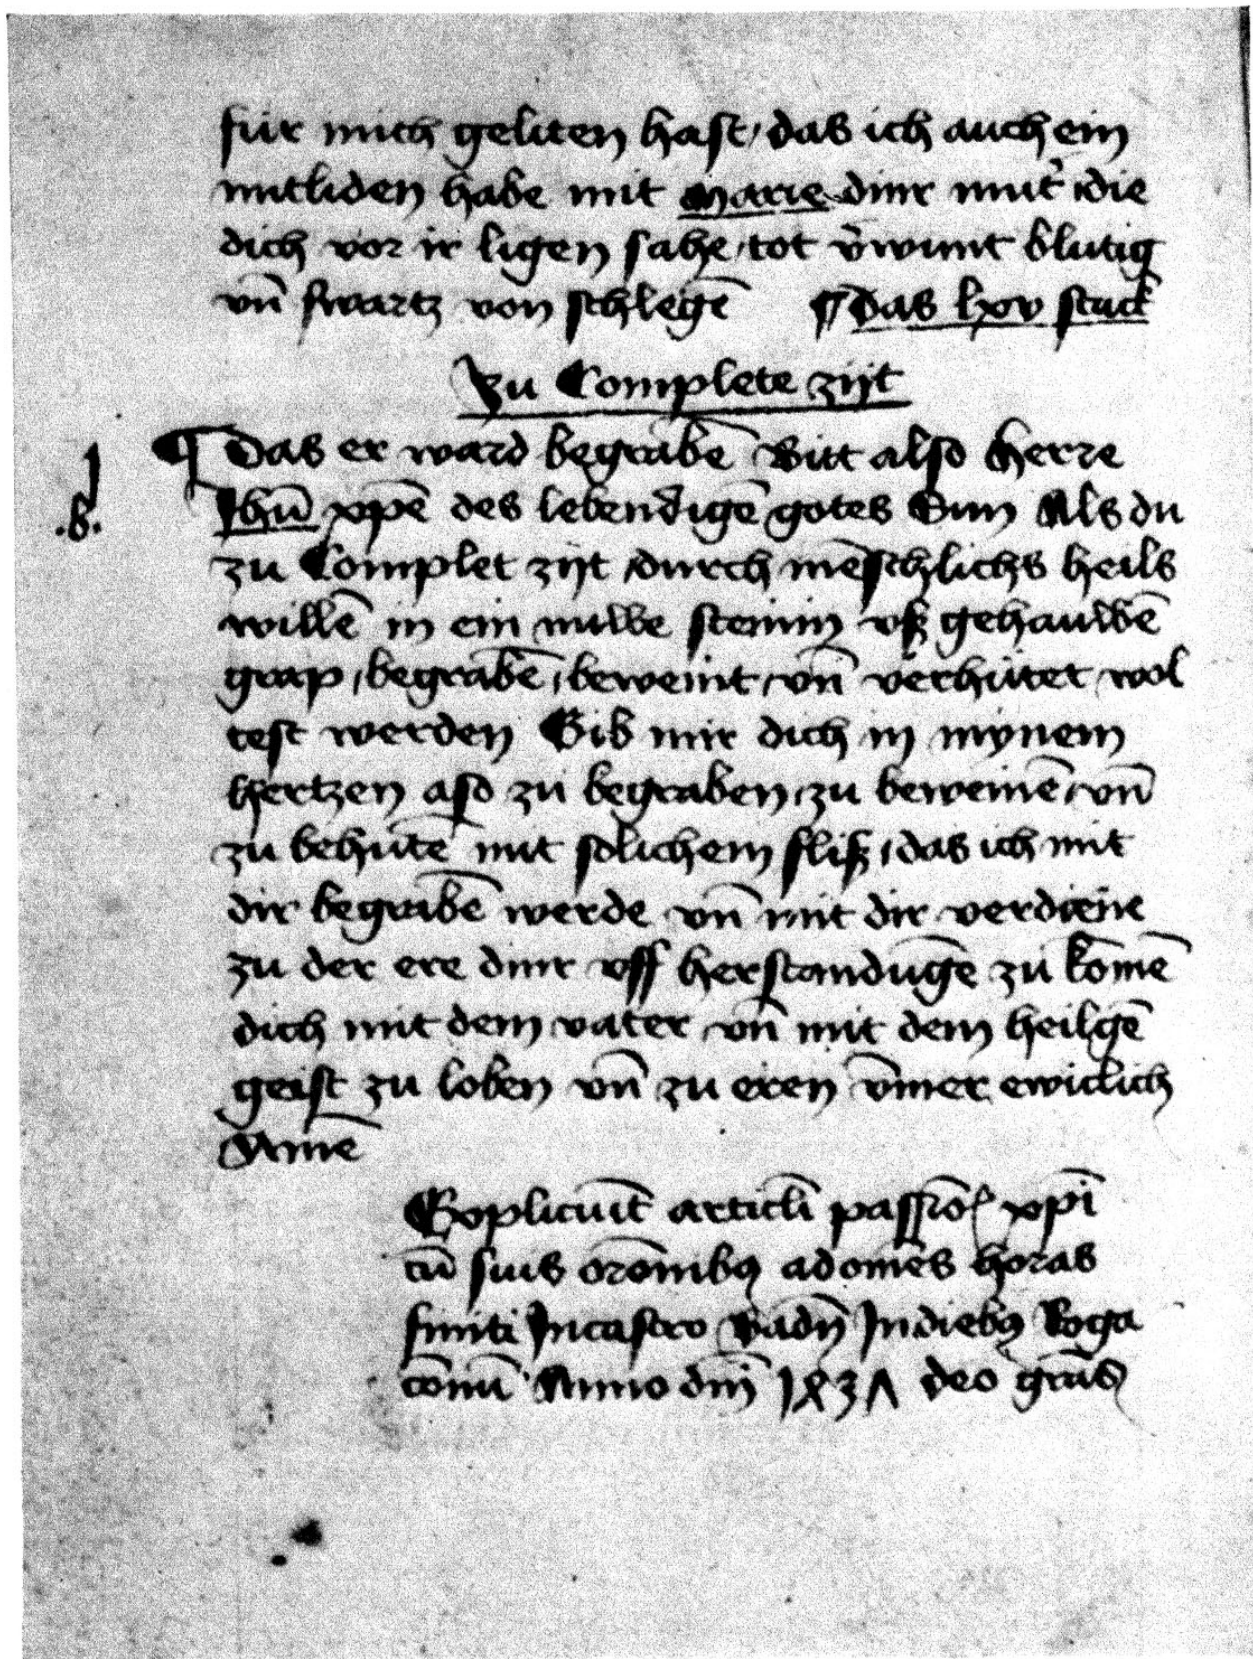 für mich geliten hast / das ich auch ein
mitliden habe mit marie diner mut̉ / die
dich vor ir ligen sahe / tot v̉wunt blutig
vn̄ swartz von schlegē ¶ Das lxv stuck
Zu Complete zijt
¶ Das er ward begrabē Bitt also Herre
.b. Jhū xp̄e des lebendigē gotes Sun Als du
zu Complet zijt / durch mēschlichs heils
willē in ein nuwe steinin vß gehauwē
grap / begrabē / beweint / vn̄ verhütet / wol
test werden Gib mir dich in mynem
Hertzen aso zu begraben / zu beweinē / vn̄
zu behütē mit solichem fliß / das ich mit
dir begrabē werde vn̄ mit dir verdiene
zu der ere diner vff herstandūgē zu komē
dich mit dem vater vn̄ mit dem heilgē
geist zu loben vn̄ zu eren v̄mer ewiclich
Amē
Explicuīt articl̄i passiōꝭ xp̄i
cū suis orōnibꝰ ad om̄es horas
finiti Incastro Badn̄ Indiebꝰ Roga
cōnū Anno dn̄j 1ꝝ3Λ deo grās